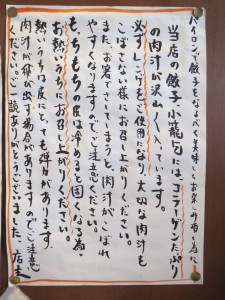 バイコンで餃子もならべ、美味しくお召し上がり
当店の餃子小籠包には、コラーゲンたっぷり
の肉汁が沢山入っています。
必ずレンゲをご使用になり、大切な肉汁も
こぼさない様にお召し上がりください。
また、お箸でさしてしまうと肉汁がこぼれ
やすくなりますので、ご注意ください。
もちもちの皮は冷めると固くなる為、
お熱いうちにお召し上がりください。
熱いうちは皮にとても弾力があります。
肉汁が飛び出す場合がありますので、ご注意
ください。ご一読ありがとうございました。店主